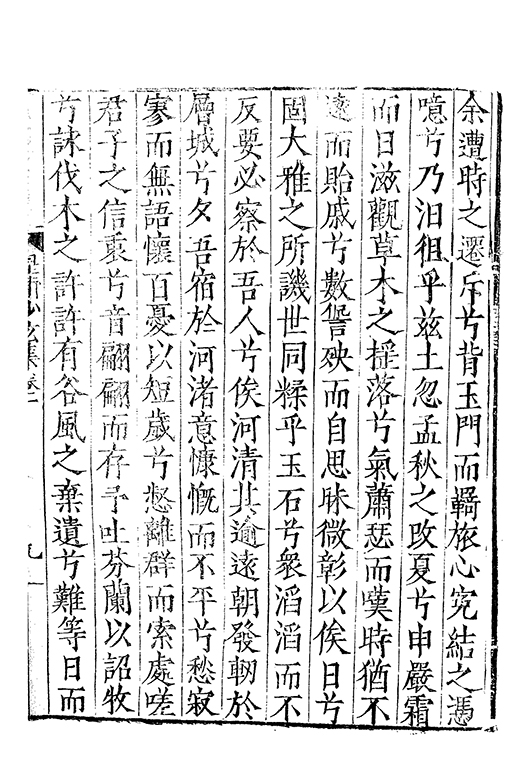 余遭時之遷斥兮背玉門而羇旅心寃結之馮
噫兮乃汨徂乎兹土忽孟秋之改夏兮申嚴霜
而日滋觀草木之揺落兮氣蕭瑟而嘆時猶不
遠而貽戚兮數訾殃而自思昧微彰以俟日兮
固大雅之所譏世同糅乎玉石兮衆滔滔而不
反要必察於吾人兮俟河清其逾遠朝發軔於
層城兮夕吾宿於河渚意慷慨而不平兮愁寂
寥而無語懷百憂以短歲兮愁離群而索處嗟
君子之信乖兮音翩翩而存予吐芬蘭以詔牧
兮詠伐木之許許有谷風之棄遺兮難等日而
集卷二
九